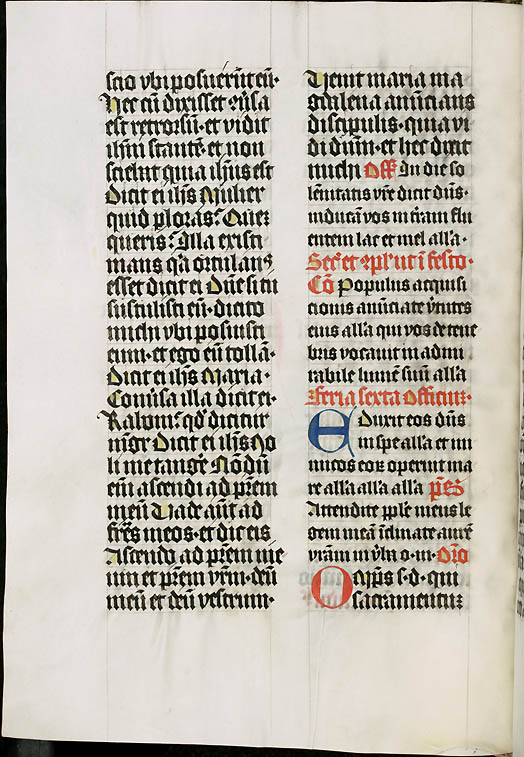 scio vbi posuerūt eū·
Hec cū dixisset ꝯūsa
est retrorsū· et vidit
ih̄m stantē· et non
sciebat quia ih̄us est
Dicit ei ih̄s Mulier
quid ploras? Quez
queris? Illa existi
mans qꝛ ortulanꝰ
esset dicit ei Dn̄e si tu
sustulisti eū· dicito
michi vbi posuisti
eum· et ego eū tollā·
Dicit ei ih̄s Maria·
Conūsa illa dicit ei·
Raboni· qd̄ dicitur
mgr̄ Dicit ei ih̄s No
li me tanger̄ Nōdū
em̄ ascendi ad pr̄em
meū Vade aūt ad
fr̄es meos· et dic eis
Ascendo ad pr̄em me
um et pr̄em vr̄m· deū
meū et deū vestrum·
Venit maria ma
gdalena anūcians
discipulis· quia vi
di dūm· et hec dixit
michi Off̄ In die so
lēnitatis vr̄e dicit dūs·
inducā vos in t̄ram flu
entem lac et mel all'a·
Secr̄ et ꝯpl' ut ī festo·
Cō Populus acquisi
cionis anūciate v̄tutes
eius all'a qui vos de tene
bris vocauit in admi
rabile lumē suū all'a
Feria sexta Officiuꝫ·
EDuxit eos dūs
in spe all'a et ini
micos eoꝝ operuit ma
re all'a all'a all'a p̄s
Attendite pp̄le meus le
gem meā īclinate aurē
vr̄am in v̄ba o· m· Or̄o
OMp̄s s· d· qui
sacramentuꝫ